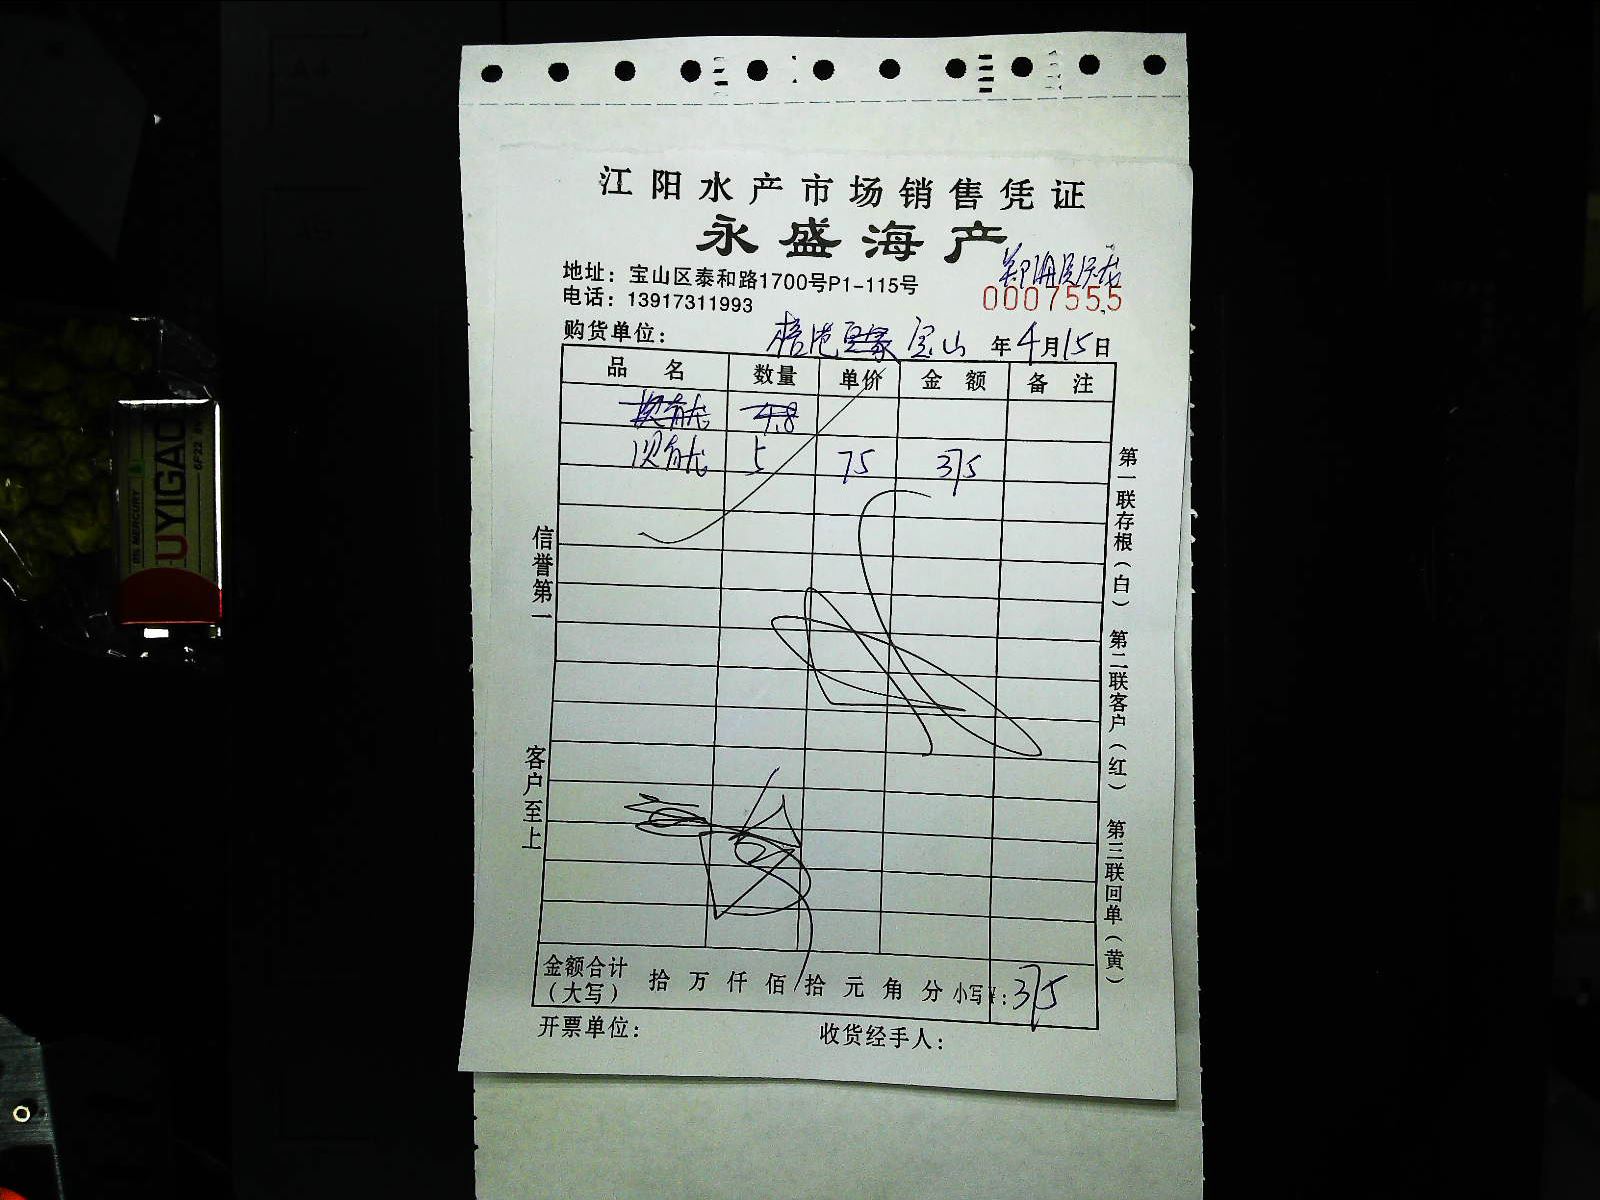 江阳水产市场销售凭证
永盛海产
地址：宝山区泰和路1700号P1-115号
电话：13917311993
0007555
购货单位： 宝山 年4月15日
品名 数量 单价 金额 备注
4.8
5 75 375
信誉第一
客户至上
第一联存根（白） 第二联客户（红） 第三联回单（黄）
金额合计（大写） 拾 万 仟 佰 拾 元 角 分 小写¥：375
开票单位： 收货经手人：
UYIGAO
0% MERCURY
6F22